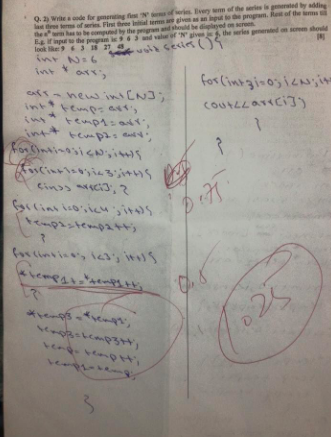 Q. 2) Write a code for generating first 'N' terms of series. Every term of the series is generated by adding
last three terms of series. First three Initial terms are given as an input to the program. Rest of the terms till
the nth term has to be computed by the program and should be displayed on screen.
E.g. if input to the program is 9 6 3 and value of 'N' gives is 6, the series generated on screen should
look like: 9 6 3 18 27 48 [8]
void series(){
int N=6
int * arr;
arr = new int[N];
int* temp=arr;
int* temp1=arr;
int* temp2=arr;
for(int i=0; i<N; i++){
for(int i=0; i<3; i++){
cin>> arr[i]; }
for(int i=0; i<4; i++){
temp2=temp2++;
}
for(int i=0; i<3; i++){
*temp1+=*temp1++;
}
temp3=temp3++;
temp=temp++;
temp1=temp;
}
for(int i=0; i<N; i++
cout<<arr[i]}
}
}
0.5
0.25